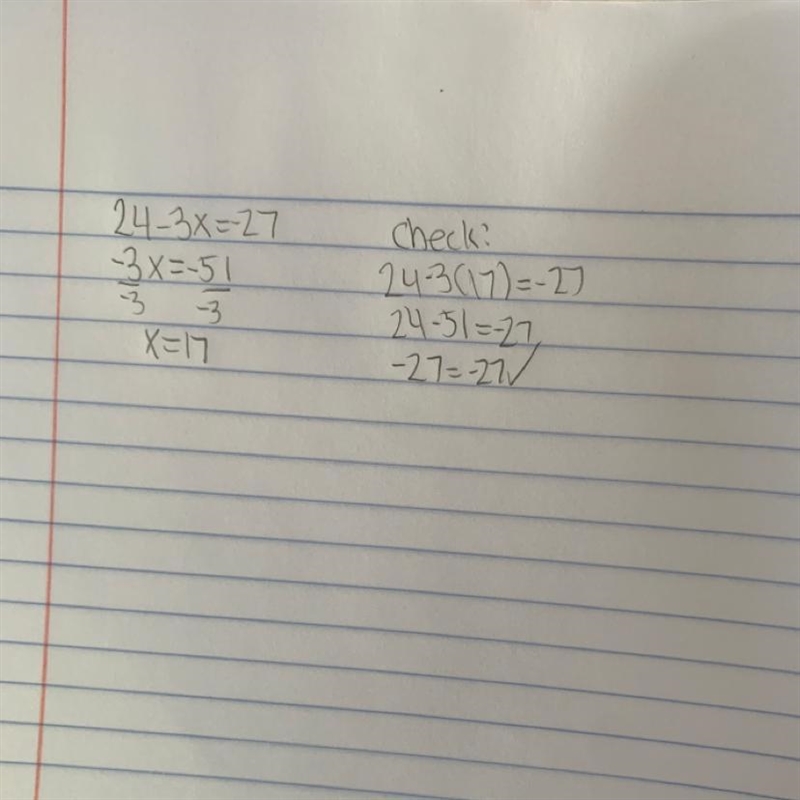 24-3x=-27
-3x=-51
-3 -3
x=17
Check:
24-3(17)=-27
24-51=-27
-27=-27✓